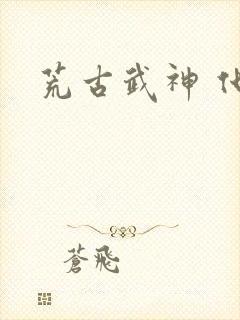 荒古武神
蒼飛